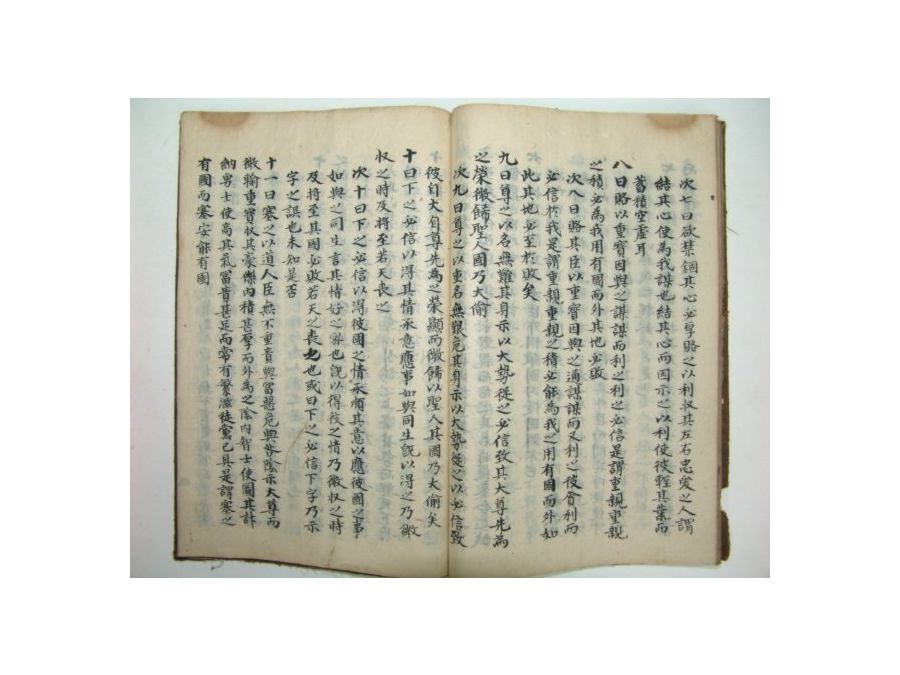 次七曰欲禁錮其心必厚賂之以利収其左右忠愛之人謂
結其心使為我謀也結其心而因示之以利使彼輕其業而
蓄積空虛耳
八曰賂以重寶因與之謀謀而利之利之必信是謂重親重親
之積必為我用有國而外其地必敗
次八曰賂其臣以重寶因與之通謀謀而又利之彼貪利而
必信於我是謂重親重親之積必能為我之用有國而外如
此其地必至於敗矣
九曰尊之以名無難其身示以大勢從之必信致其大尊先為
之榮微餙聖人國乃大偷
次九曰尊之以重名無艱危其身示以大勢從之以必信致
彼自大自尊先為之榮顯而微餙以聖人其國乃大偷矣
十曰下之必信以得其情承意應事如與同生旣以得之乃微
収之時及將至若天喪之
次十曰下之必信以得彼國之情承順其意以應彼國之事
如與之同生言其情好之也旣以得彼之情乃微収之時
及將至其國必敗若天之喪也或曰下之必信下字乃示
字之誤也未知是否
十一曰塞之以道人臣無不重貴與富惡危與咎陰示大尊而
微輸重寶収其豪傑內積甚厚而外為之陰內智士使圖其計
納勇士使高其氣富貴甚足而常有繁滋徒黨已具是謂塞之
有國而塞安能有國